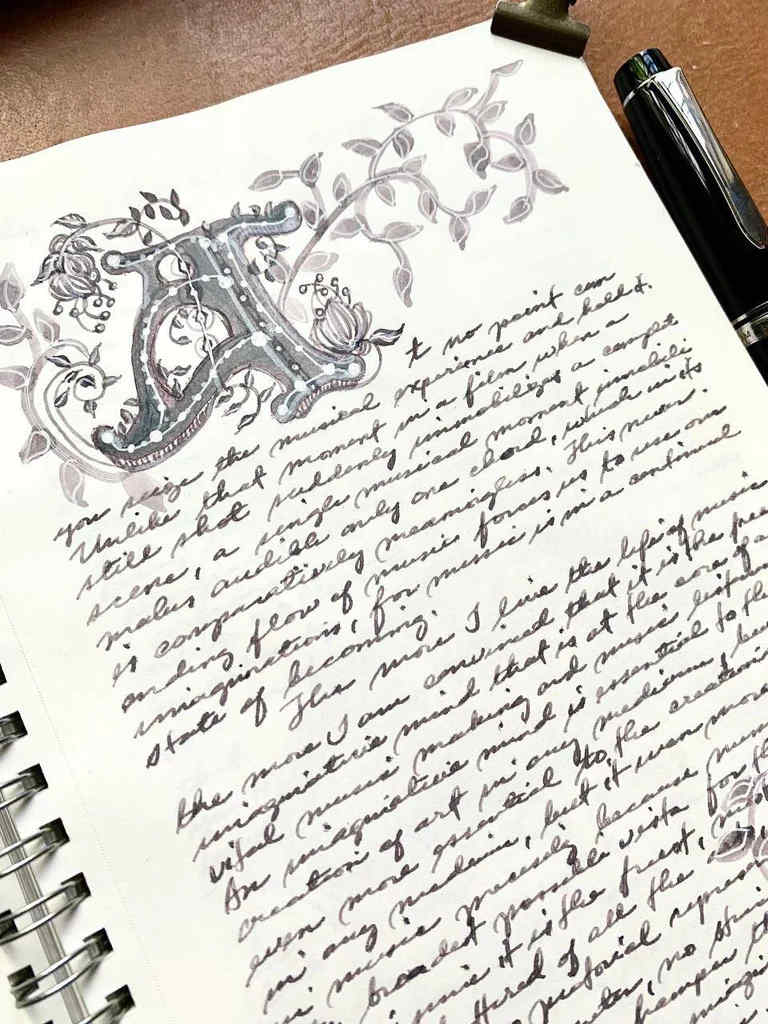 At no point can
you seize the musical experience and hold it.
Unlike that moment in a film when a
still shot suddenly immobilizes a complet
scene, a single musical moment immobili
makes audible only one chord, which in its
is comparatively meaningless. This never
ending flow of music forces us to use our
imaginations, for music is in a continual
state of becoming.
The more I live the life of music
the more I am convinced that it is the free
imaginative mind that is at the core of a
vital music making and music listen
An imaginative mind is essential to the
creation of art in any medium, but
even more essential to the creation
in any medium, but it even more
in music precisely because mus
broadest possible vista for th
since it is the freest,
ttered of all the
pictorial represen
meter, no stri
hamper th
imagin